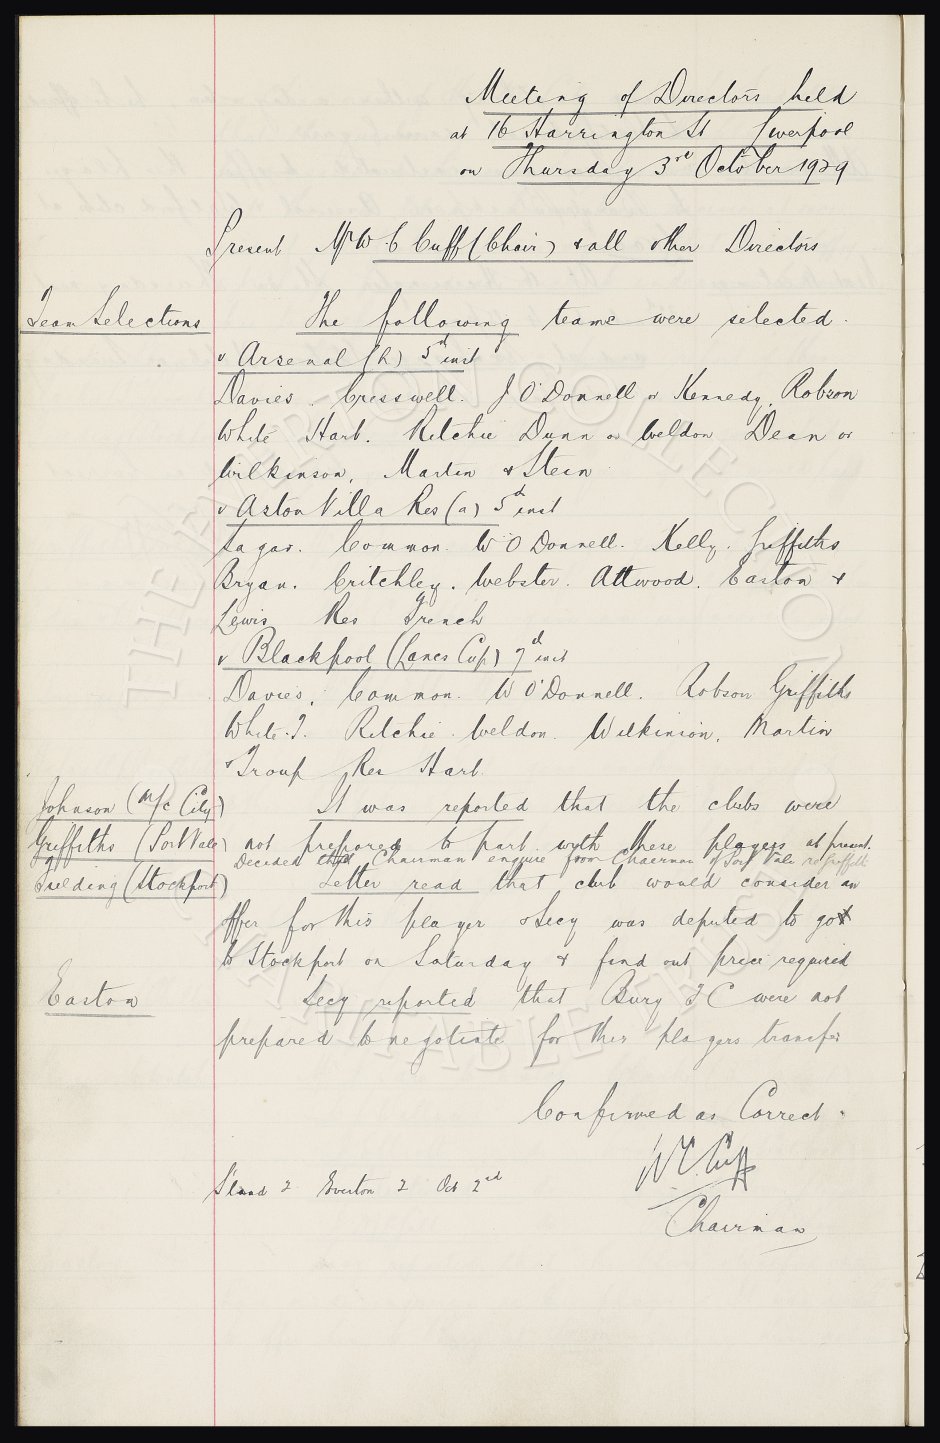 Meeting of Directors held
at 16 Harrington St Liverpool
on Thursday 3rd October 1929
Present Mr W. C. Cuff (Chair) & all other Directors
Team Selections The following teams were selected.
v Arsenal (h) 5th inst
Davies. Cresswell. J O'Donnell or Kennedy, Robson
White Hart. Ritchie Dunn or Weldon Dean or
Wilkinson, Martin & Stein
v Aston Villa Res (a) 5th inst
Sagar. Common. W O'Donnell. Kelly. Griffiths
Bryan. Critchley. Webster. Attwood. Easton &
Lewis Res French
v Blackpool (Lancs Cup) 7th inst
Davies. Common. W O'Donnell. Robson Griffiths
White. T. Ritchie. Weldon. Wilkinson, Martin
& Troup Res Hart.
Johnson (M/c City) It was reported that the clubs were
Griffiths (Port Vale) not prepared to part with these players at present.
Decided that Chairman enquire from Chairman of Port Vale re Griffiths
Fielding (Stockport) Letter read that club would consider an
offer for this player & Secy was deputed to go
to Stockport on Saturday & find out price required
Easton Secy reported that Bury F C were not
prepared to negotiate for this players transfer
Confirmed as Correct.
W C Cuff
Chairman
S'land 2 Everton 2 Oct 2nd
THE EVERTON COLLECTION
CHARITABLE TRUST